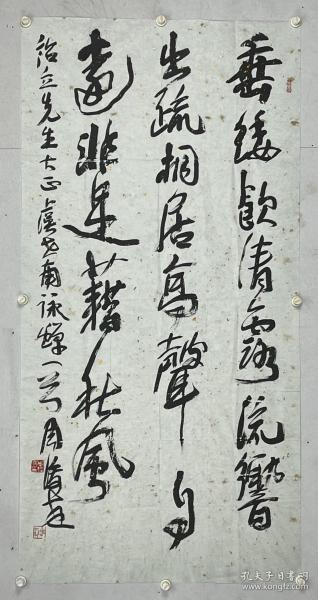 垂緌飲清露流響
出疏桐居高聲自
遠非是藉秋風
治立先生大正 虞世南詠蟬一首 周
孔夫子旧书网
www.kongfz.com